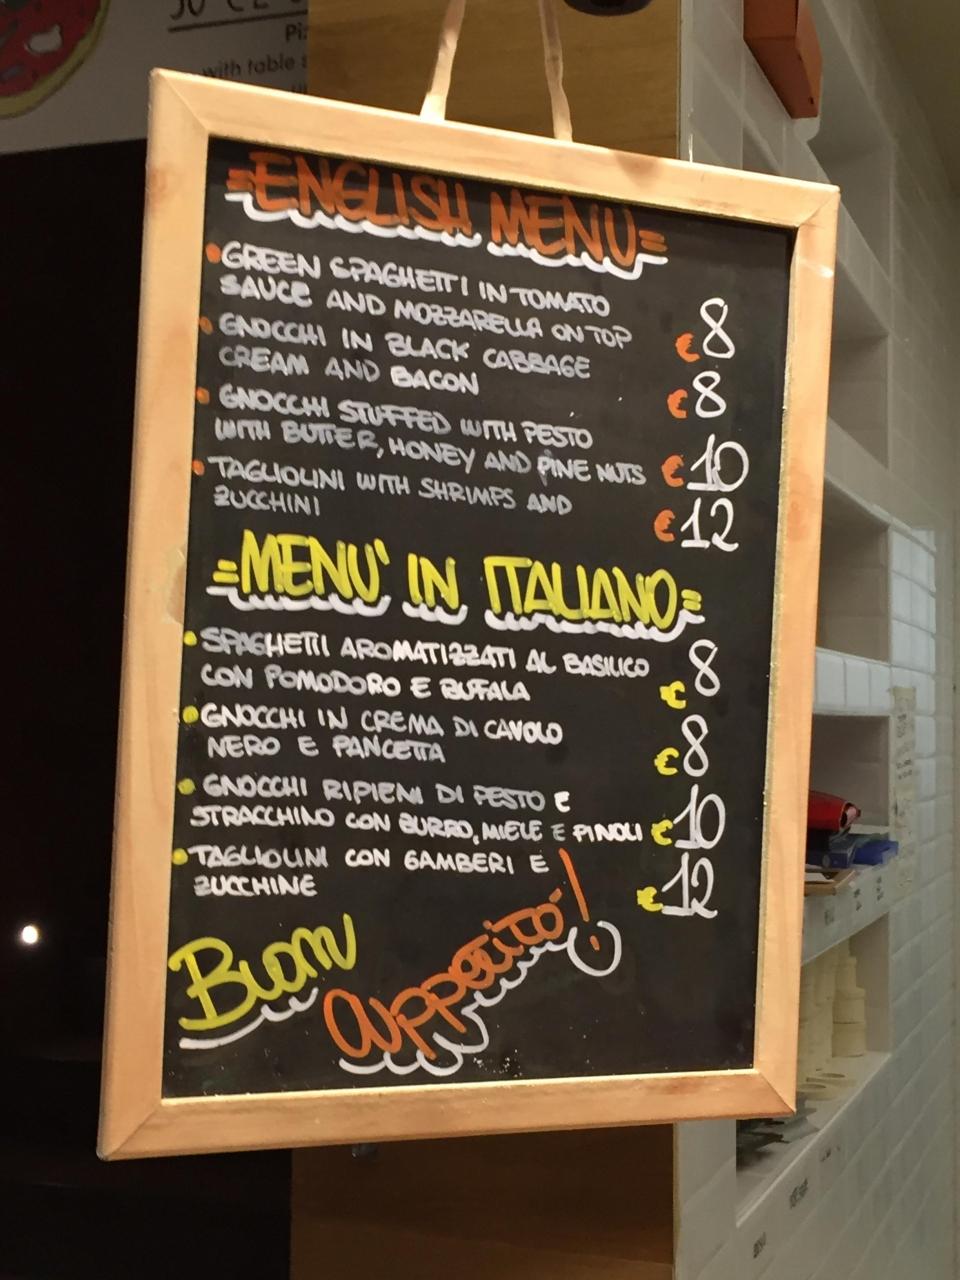 with table
=ENGLISH MENU=
• GREEN SPAGHETTI IN TOMATO
SAUCE AND MOZZARELLA ON TOP €8
• GNOCCHI IN BLACK CABBAGE
CREAM AND BACON €8
• GNOCCHI STUFFED WITH PESTO
WITH BUTTER, HONEY AND PINE NUTS €10
• TAGLIOLINI WITH SHRIMPS AND
ZUCCHINI €12
=MENU' IN ITALIANO=
• SPAGHETTI AROMATIZZATI AL BASILICO
CON POMODORO E BUFALA €8
• GNOCCHI IN CREMA DI CAVOLO
NERO E PANCETTA €8
• GNOCCHI RIPIENI DI PESTO E
STRACCHINO CON BURRO, MIELE E PINOLI €10
• TAGLIOLINI CON GAMBERI E
ZUCCHINE €12
Buon
appetito!